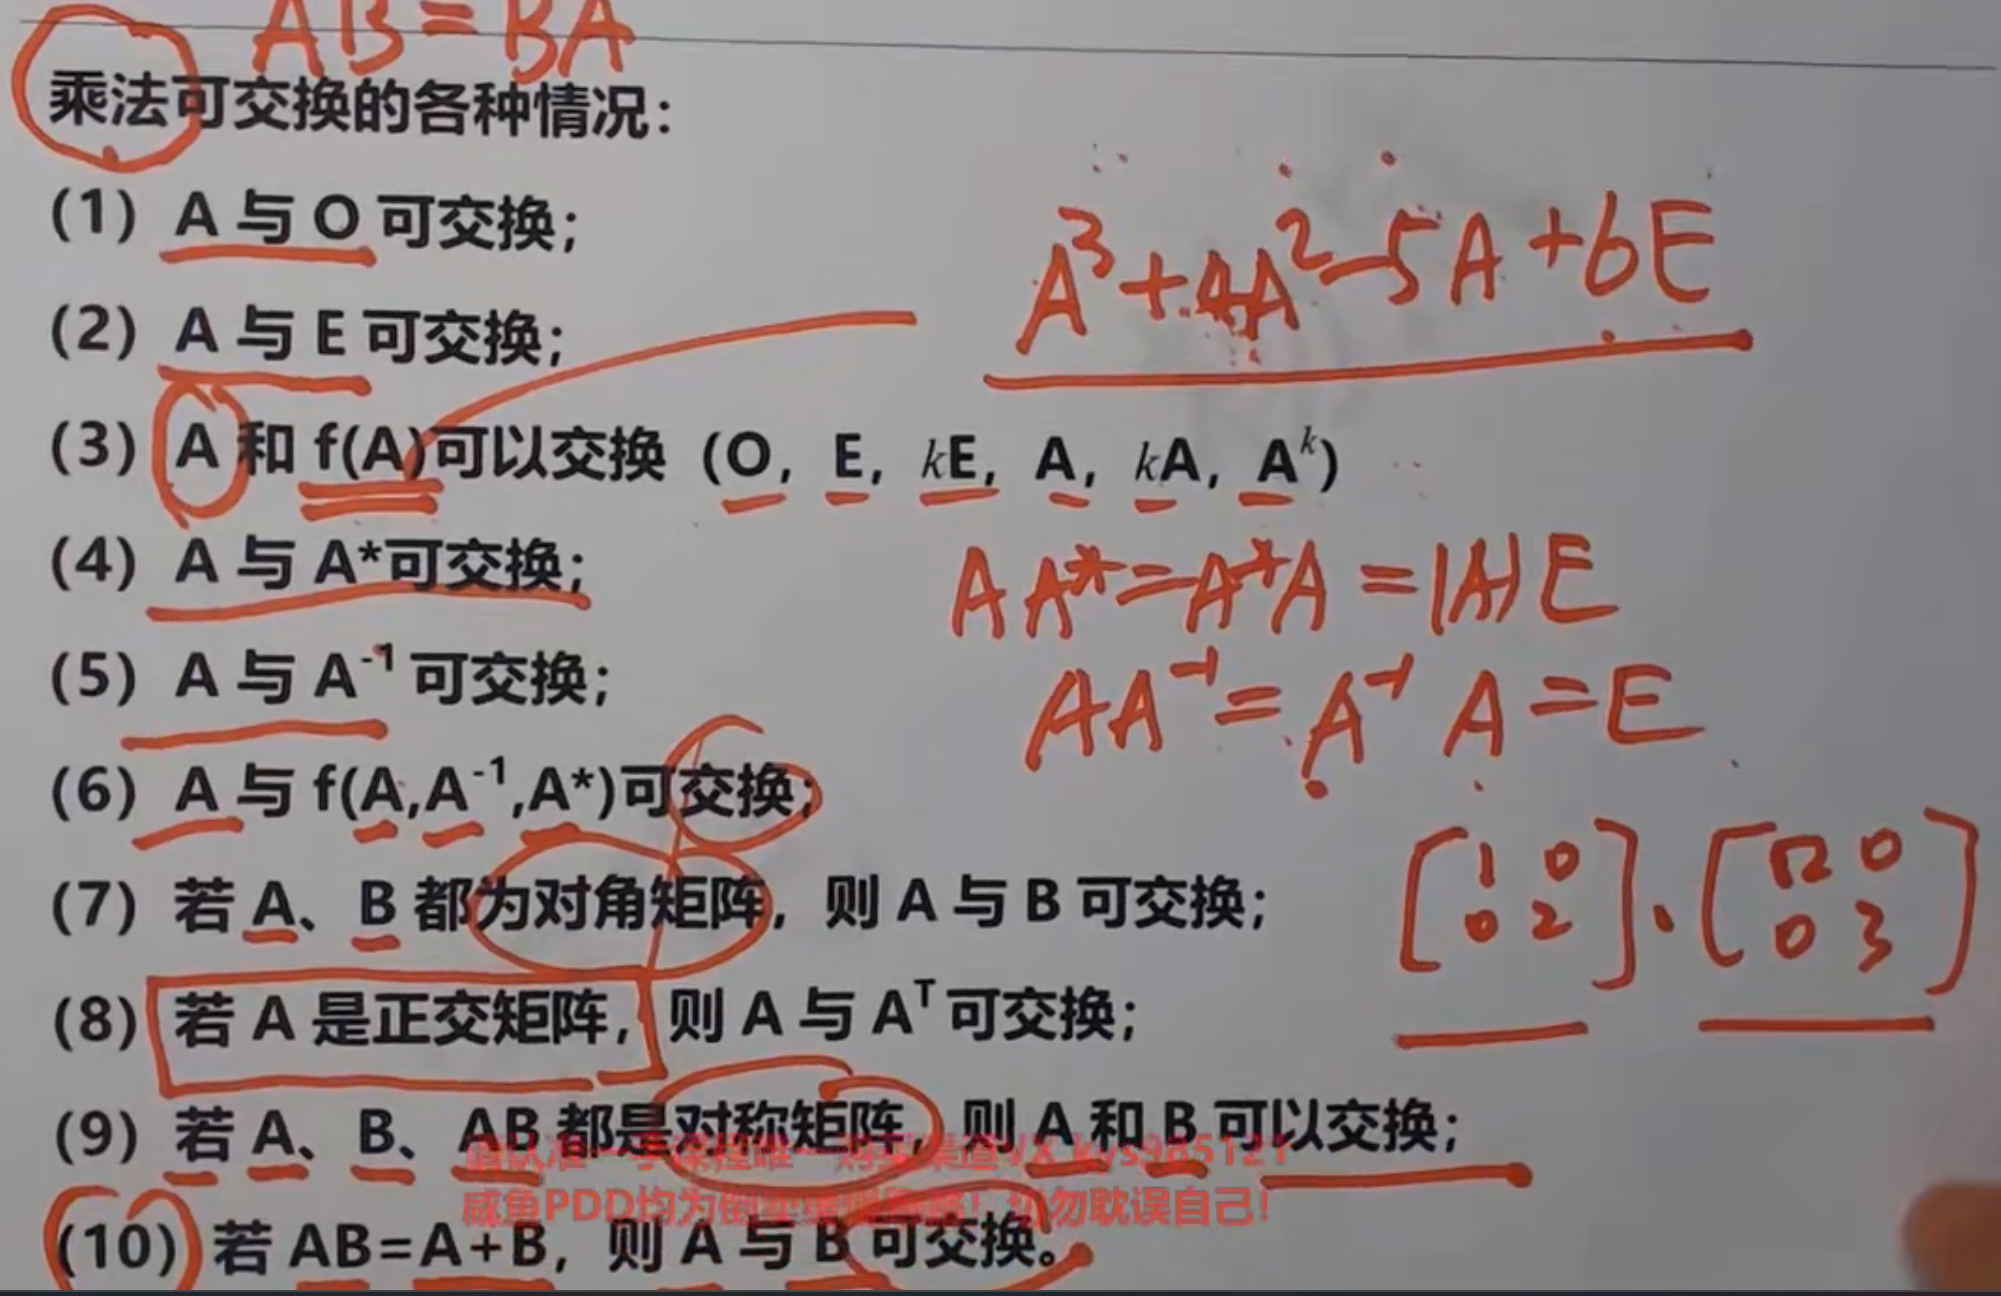 AB=BA
乘法可交换的各种情况：
(1) A 与 O 可交换；
A³+4A²-5A+6E
(2) A 与 E 可交换；
(3) A 和 f(A)可以交换（O, E, kE, A, kA, Aᵏ）
(4) A 与 A*可交换；
AA*=A*A=|A|E
(5) A 与 A⁻¹ 可交换；
AA⁻¹=A⁻¹A=E
(6) A 与 f(A,A⁻¹,A*)可交换；
(7) 若 A、B 都为对角矩阵，则 A 与 B 可交换；
1 0
0 2
0
0 3
(8) 若 A 是正交矩阵，则 A 与 Aᵀ 可交换；
(9) 若 A、B、AB 都是对称矩阵，则 A 和 B 可以交换；
请认准一手课程唯一购买渠道VX kys985121
咸鱼PDD均为倒卖 ！切勿耽误自己！
(10) 若 AB=A+B，则 A 与 B 可交换。